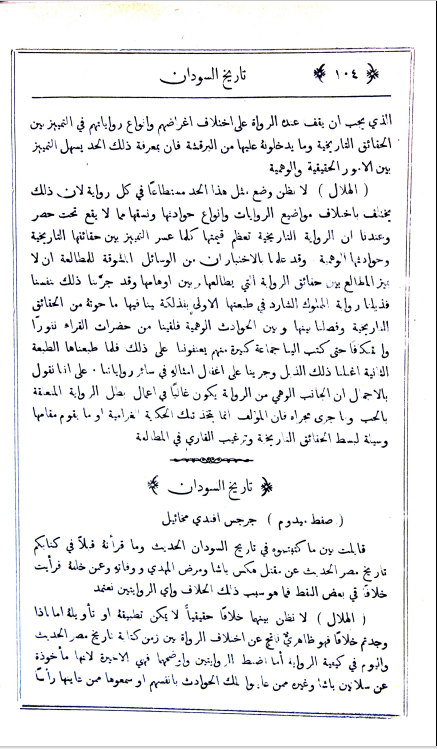 ﴿ ١٠٤ ﴾ تاريخ السودان
الذي يجب ان يقف عنده الرواة على اختلاف اغراضهم وانواع رواياتهم في التمييز بين
الحقائق التاريخية وما يدخلونه عليها من البرقشة فان بمعرفة ذلك الحد يسهل التمييز
بين الامور الحقيقية والوهمية
( الهلال ) لا نظن وضع مثل هذا الحد مستطاعًا في كل رواية لان ذلك
يختلف باختلاف مواضيع الروايات وانواع حوادثها ونسقها مما لا يقع تحت حصر
وعندنا ان الرواية التاريخية تعظم قيمتها كلما عسر التمييز بين حقائقها التاريخية
وحوادثها الوهمية وقد علمنا بالاختبار ان من الوسائل المشوقة للمطالعة ان لا
يميز المطالع بين حقائق الرواية التي يطالعها وبين اوهامها وقد جرّبنا ذلك بنفسنا
فذيلنا رواية المملوك الشارد في طبعتها الاولى بفذلكة بينا فيها ما حوته من الحقائق
التاريخية وفصلنا بينها وبين الحوادث الوهمية فلقينا من حضرات القراء نفورًا
واستنكافًا حتى كتب الينا جماعة كبيرة منهم يعنفوننا على ذلك فلما طبعناها الطبعة
الثانية اغفلنا ذلك الذيل وجرينا على اغفال امثاله في سائر رواياتنا . على اننا نقول
بالاجمال ان الجانب الوهمي من الرواية يكون غالبًا في اعمال بطل الرواية المتعلقة
بالحب وما جرى مجراه فان المؤلف انما يتخذ تلك الحكاية الغرامية او ما يقوم مقامها
وسيلة لبسط الحقائق التاريخية وترغيب القارئ في المطالعة
﴿ تاريخ السودان ﴾
( صفط ميدوم ) جرجس افندي مخائيل
قابلت بين ما كتبتموه في تاريخ السودان الحديث وما قرأنهُ قبلاً في كتابكم
تاريخ مصر الحديث عن مقتل هكس باشا ومرض المهدي ووفاته وعن خلفهِ فرأيت
خلافًا في بعض النقط فما هو سبب ذلك الخلاف واي الروايتين نعتمد
( الهلال ) لا نظن بينها خلافًا حقيقياً لا يمكن تطبيقهُ او تأويلهُ اما اذا
وجدتم خلافًا فهو ظاهريٌّ ناتج عن اختلاف الرواة بين زمن كتابة تاريخ مصر الحديث
واليوم في كيفية الرواية اما اضبط الروايتين واوضحها فهي الاخيرة لانها مأخوذة
عن سلاتين باشا وغيره ممن عاينوا تلك الحوادث بانفسهم او سمعوها ممن عاينها رأسًا